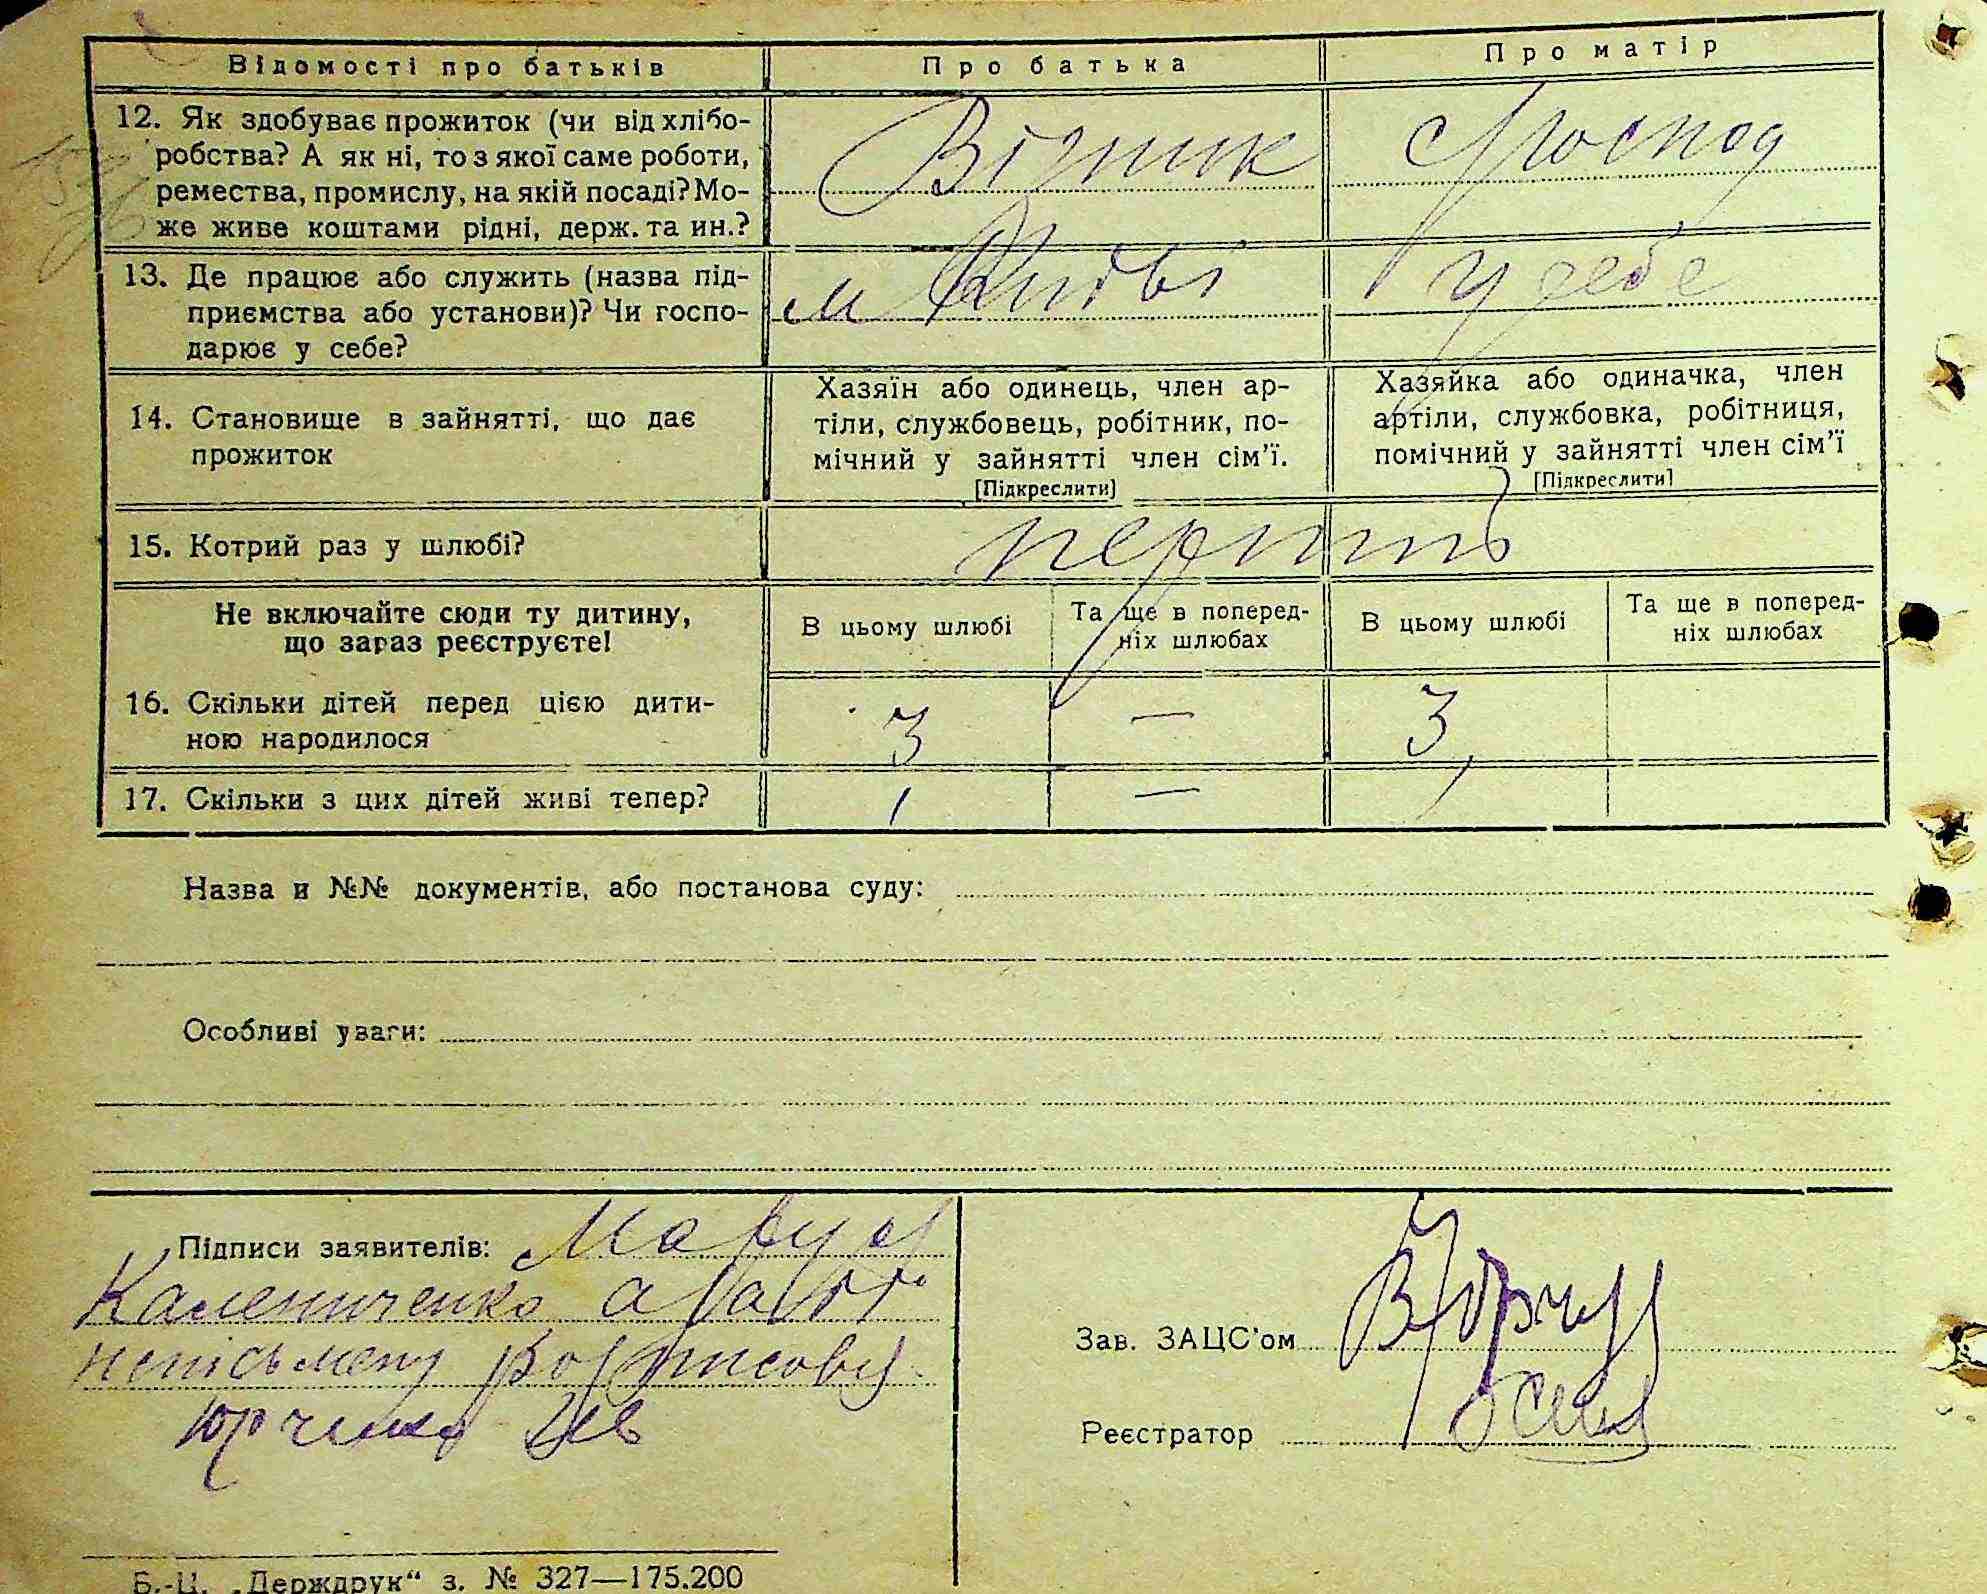 Відомості про батьків
Про батька
Про матір
12. Як здобуває прожиток (чи від хлібо-
робства? А як ні, то з якої саме роботи,
ремества, промислу, на якій посаді? Мо-
же живе коштами рідні, держ. та ин.?
Візник
Господ
13. Де працює або служить (назва під-
приємства або установи)? Чи госпо-
дарює у себе?
м Київі
у себе
14. Становище в зайнятті, що дає
прожиток
Хазяїн або одинець, член ар-
тіли, службовець, робітник, по-
мічний у зайнятті член сім'ї.
[Підкреслити]
Хазяйка або одиначка, член
артіли, службовка, робітниця,
помічний у зайнятті член сім'ї
[Підкреслити]
15. Котрий раз у шлюбі?
перший
Не включайте сюди ту дитину,
що зараз реєструєте!
В цьому шлюбі
Та ще в поперед-
ніх шлюбах
В цьому шлюбі
Та ще в поперед-
ніх шлюбах
16. Скільки дітей перед цією дити-
ною народилося
3 — 3
17. Скільки з цих дітей живі тепер?
1 — 1
Назва и №№ документів, або постанова суду:
Особливі уваги:
Підписи заявителів:
Каленченко а за її
непісьмену Росписовся
Юрченко
Зав. ЗАЦС'ом
Реєстратор
Б.-Ц. „Держдрук“ з. № 327—175.200